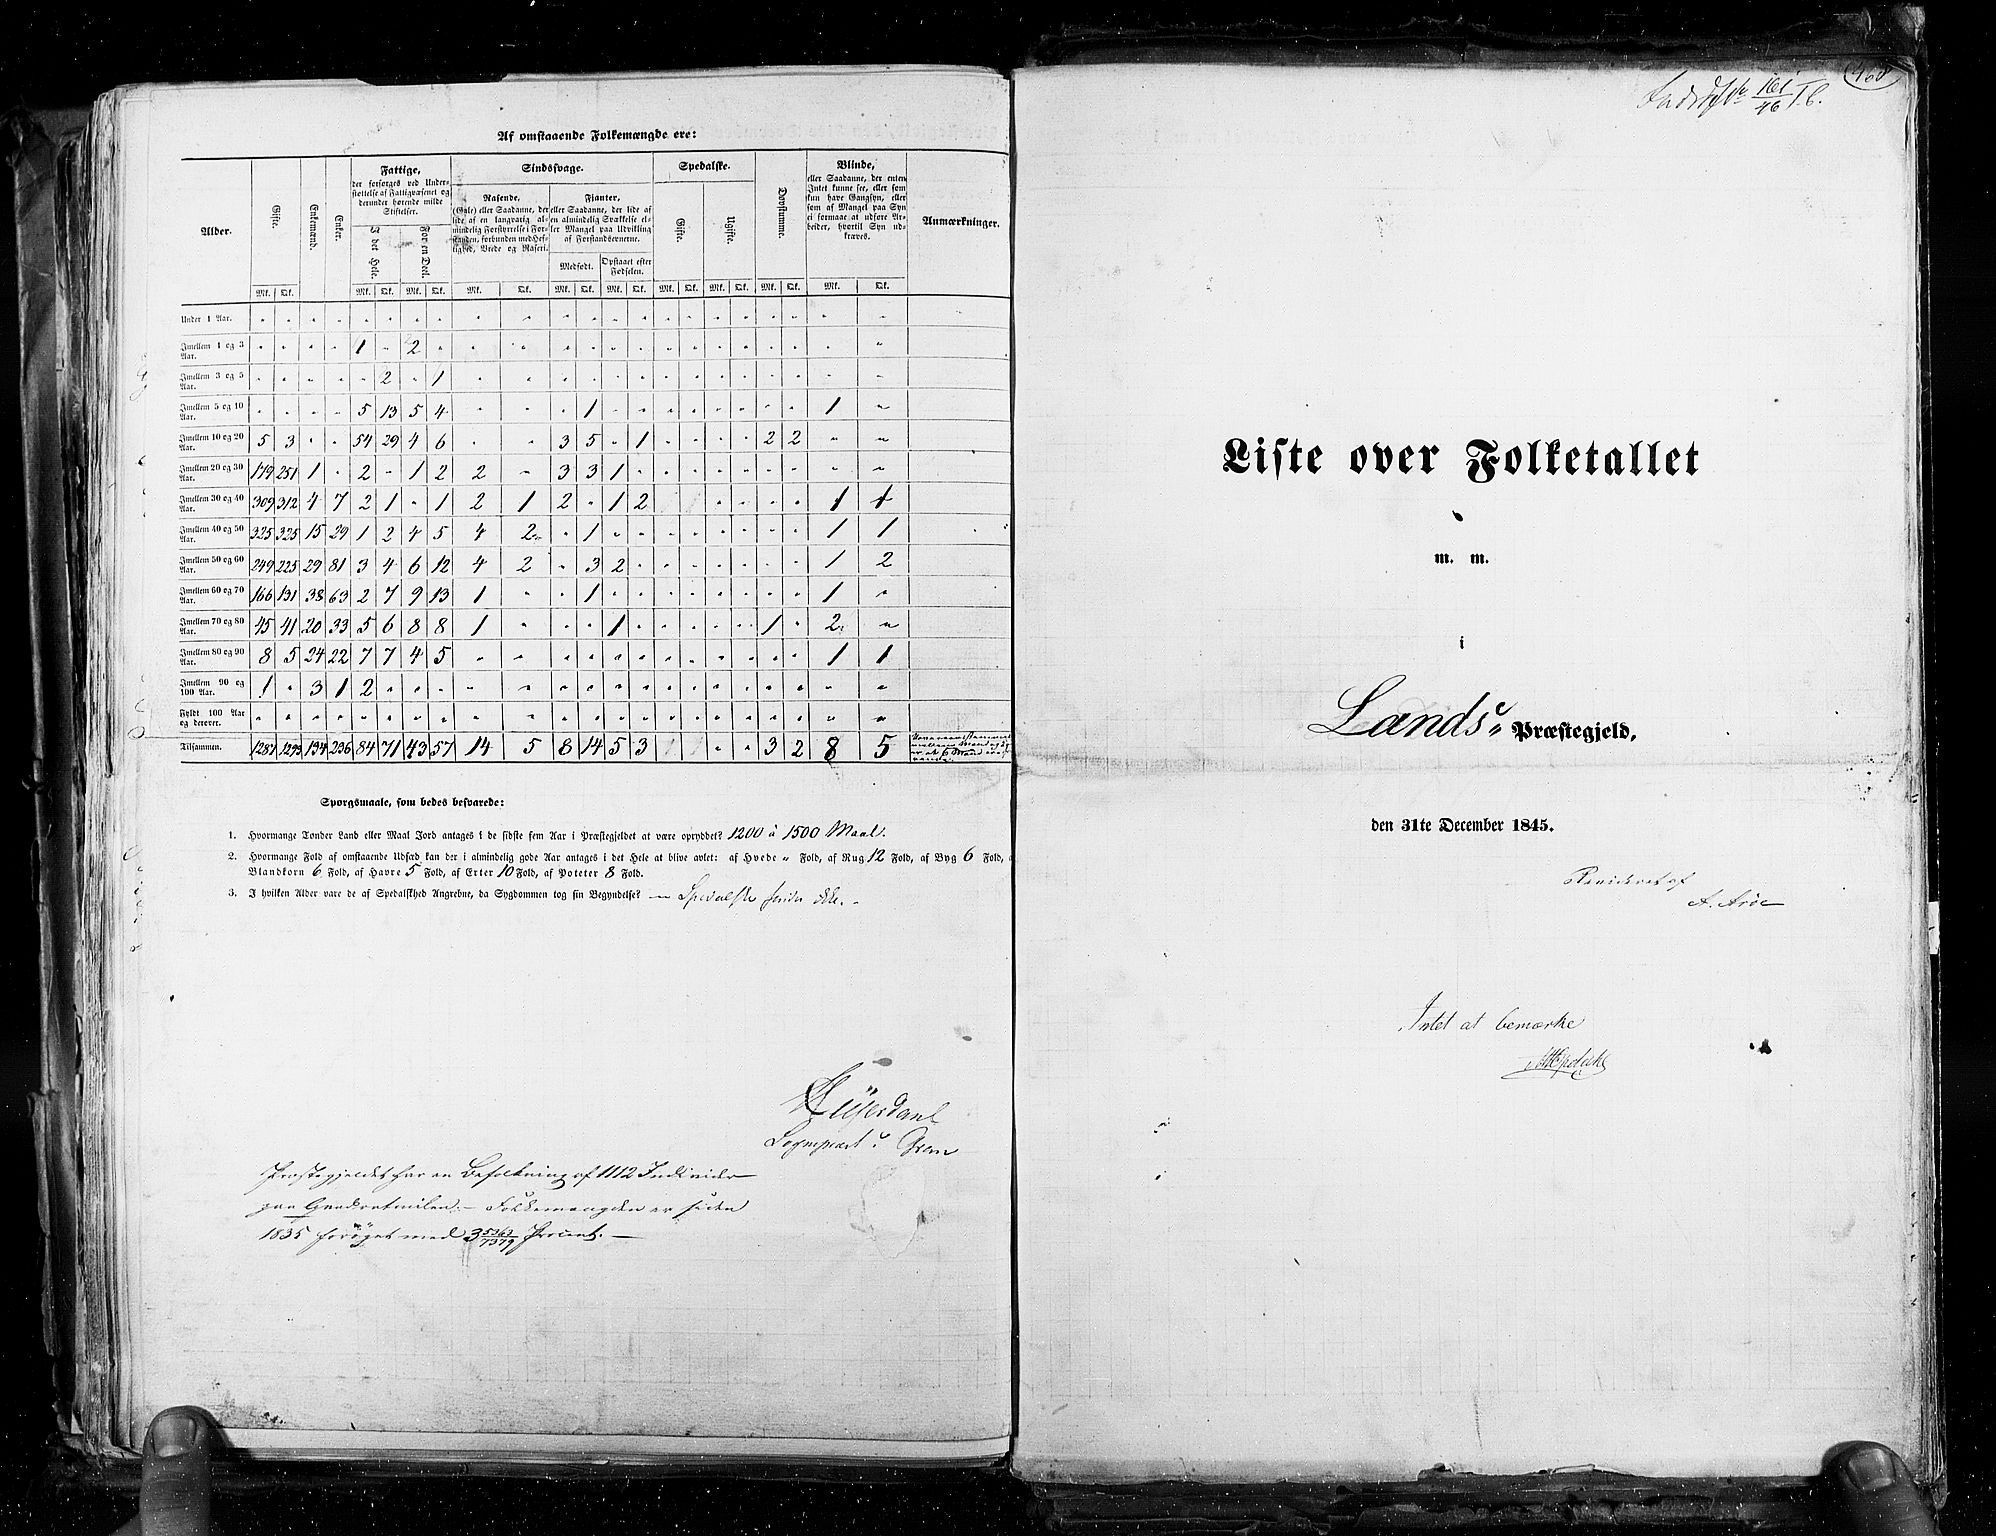 Af omstaaende Folkemængde ere:
Alder. Gifte. Enkemænd. Enker. Fattige, Sindssvage. Spedalske. Døvstumme. Blinde, Anmærkninger.
der forsørges ved Under-
støttelse af Fattigvæsenet og
derunder hørende milde
Stiftelser.
I det Hele. For en Deel.
Rasende,
(Gale) eller Saadanne, der
lide af en langvarig al-
mindelig Forstyrrelse i For-
standen, forbunden med Hef-
tighed, Vrede og Raseri.
Fjanter,
eller Saadanne, der lide af
en almindelig Svækkelse el-
ler Mangel paa Udvikling
af Forstandsevnerne.
Medfødt. Opstaaet efter Fødselen.
Gifte. Ugifte.
eller Saadanne, der enten
Intet kunne see, eller som
kun have Gangsyn, eller
som af Mangel paa Syn
ei formaae at udføre Ar-
beider, hvortil Syn ud-
kræves.
Mk. Qk. Mk. Qk. Mk. Qk. Mk. Qk. Mk. Qk. Mk. Qk. Mk. Qk. Mk. Qk. Mk. Qk. Mk. Qk.
Under 1 Aar. " " " " " " " " " " " " " " " " " " " " " "
Imellem 1 og 3 Aar. " " " " 1 " 2 " " " " " " " " " " " " " " "
Imellem 3 og 5 Aar. " " " " " 2 " 1 " " " " " " " " " " " " " "
Imellem 5 og 10 Aar. " " " " 5 13 5 4 " " " 1 " " " " " " " " 1 "
Imellem 10 og 20 Aar. 5 3 " " 54 29 4 6 " " 3 5 " 1 " " " " 2 2 " "
Imellem 20 og 30 Aar. 179 251 1 " 2 " 1 2 2 " 3 3 1 " " " " " " " " "
Imellem 30 og 40 Aar. 309 312 4 7 2 1 " 1 2 1 2 " 1 2 " " " " 1 1
Imellem 40 og 50 Aar. 325 325 15 29 1 2 4 5 4 2 " 1 " " " " " " " " 1 1
Imellem 50 og 60 Aar. 249 225 29 81 3 4 6 12 4 2 " 3 2 " " " " " " " 1 2
Imellem 60 og 70 Aar. 166 131 38 63 2 7 9 13 1 " " 1 " " " " " " " " 1 "
Imellem 70 og 80 Aar. 45 41 20 33 5 6 8 8 1 " " " 1 " " " " " 1 " 2 "
Imellem 80 og 90 Aar. 8 5 24 22 7 7 4 5 " " " " " " " " " " " " 1 1
Imellem 90 og 100 Aar. 1 " 3 1 2 " " " " " " " " " " " " " " " " "
Fyldt 100 Aar og derover. " " " " " " " " " " " " " " " " " " " " " "
Tilsammen. 1287 1293 134 236 84 71 43 57 14 5 8 14 5 3 " " 3 2 8 5
Spørgsmaale, som bedes besvarede:
1. Hvormange Tønder Land eller Maal Jord antages i de sidste fem Aar i Præstegjeldet at være opryddet? 1200 à 1500 Maal.
2. Hvormange Fold af omstaaende Udsæd kan der i almindelig gode Aar antages i det Hele at blive avlet: af Hvede " Fold, af Rug 12 Fold, af Byg 6 Fold, af
Blandkorn 6 Fold, af Havre 5 Fold, af Erter 10 Fold, af Poteter 8 Fold.
3. I hvilken Alder vare de af Spedalskhed Angrebne, da Sygdommen tog sin Begyndelse? — Spedalske findes ikke. -
Sognepræst i Gran
Præstegjeldet har en Befolkning af 1112 Individer
paa Qvadratmilen. — Folkemængden er siden
1835 forøget med 3 5363/7379 Procent. —
460
161/46 T. C.
Liste over Folketallet
m. m.
i
Lands Præstegjeld,
den 31te December 1845.
Revideret af
A. Arøe
Intet at bemærke